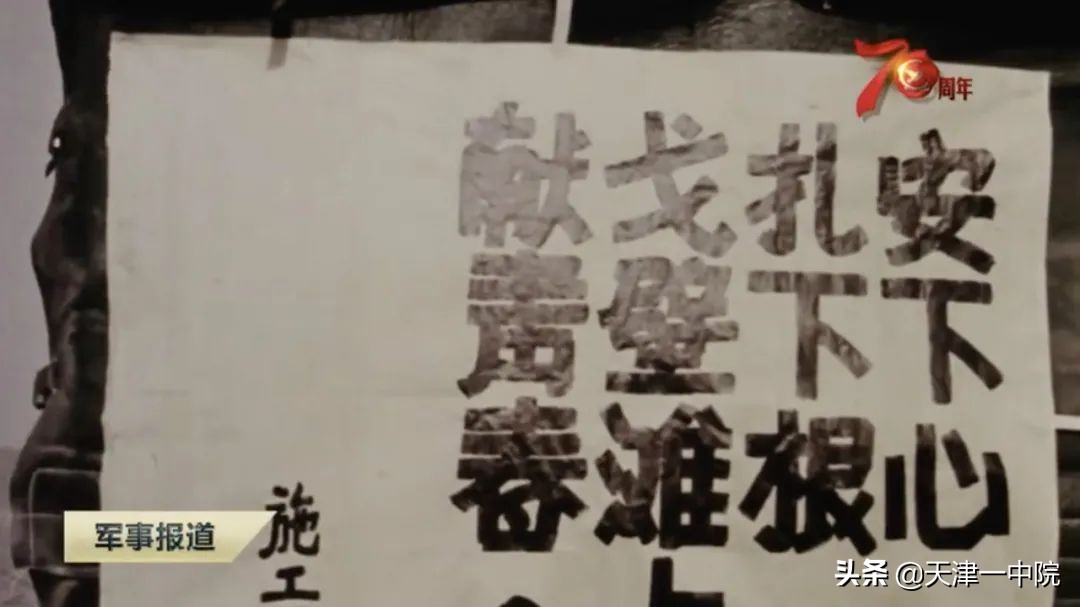 70周年
安下心
扎下根
戈壁滩上
献青春
施工
军事报道
头条 @天津一中院